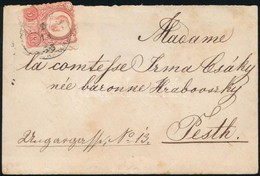 Madame
la comtesse Irma Csáky
née baronne Hrabovszky
Pesth.
Ungargasse, No 13.